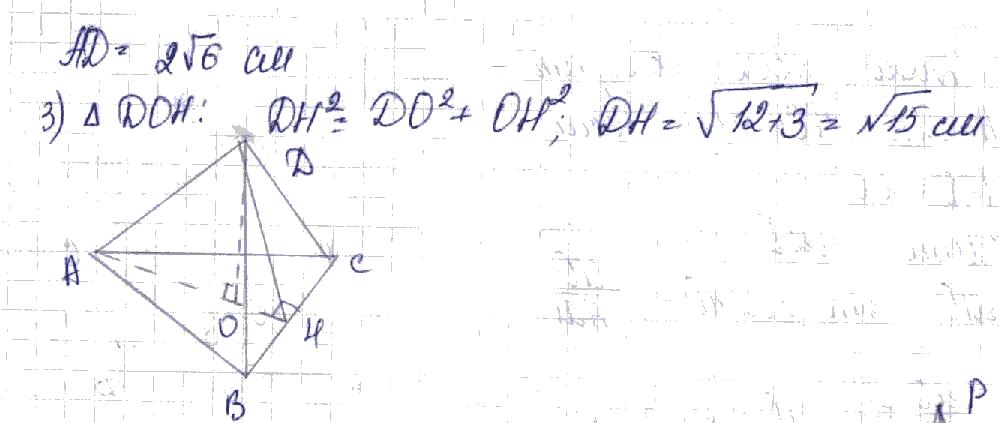 AD = 2√6 см
3) Δ DOH: DH² = DO² + OH²; DH = √12+3 = √15 см
D
A
C
O
H
B
P